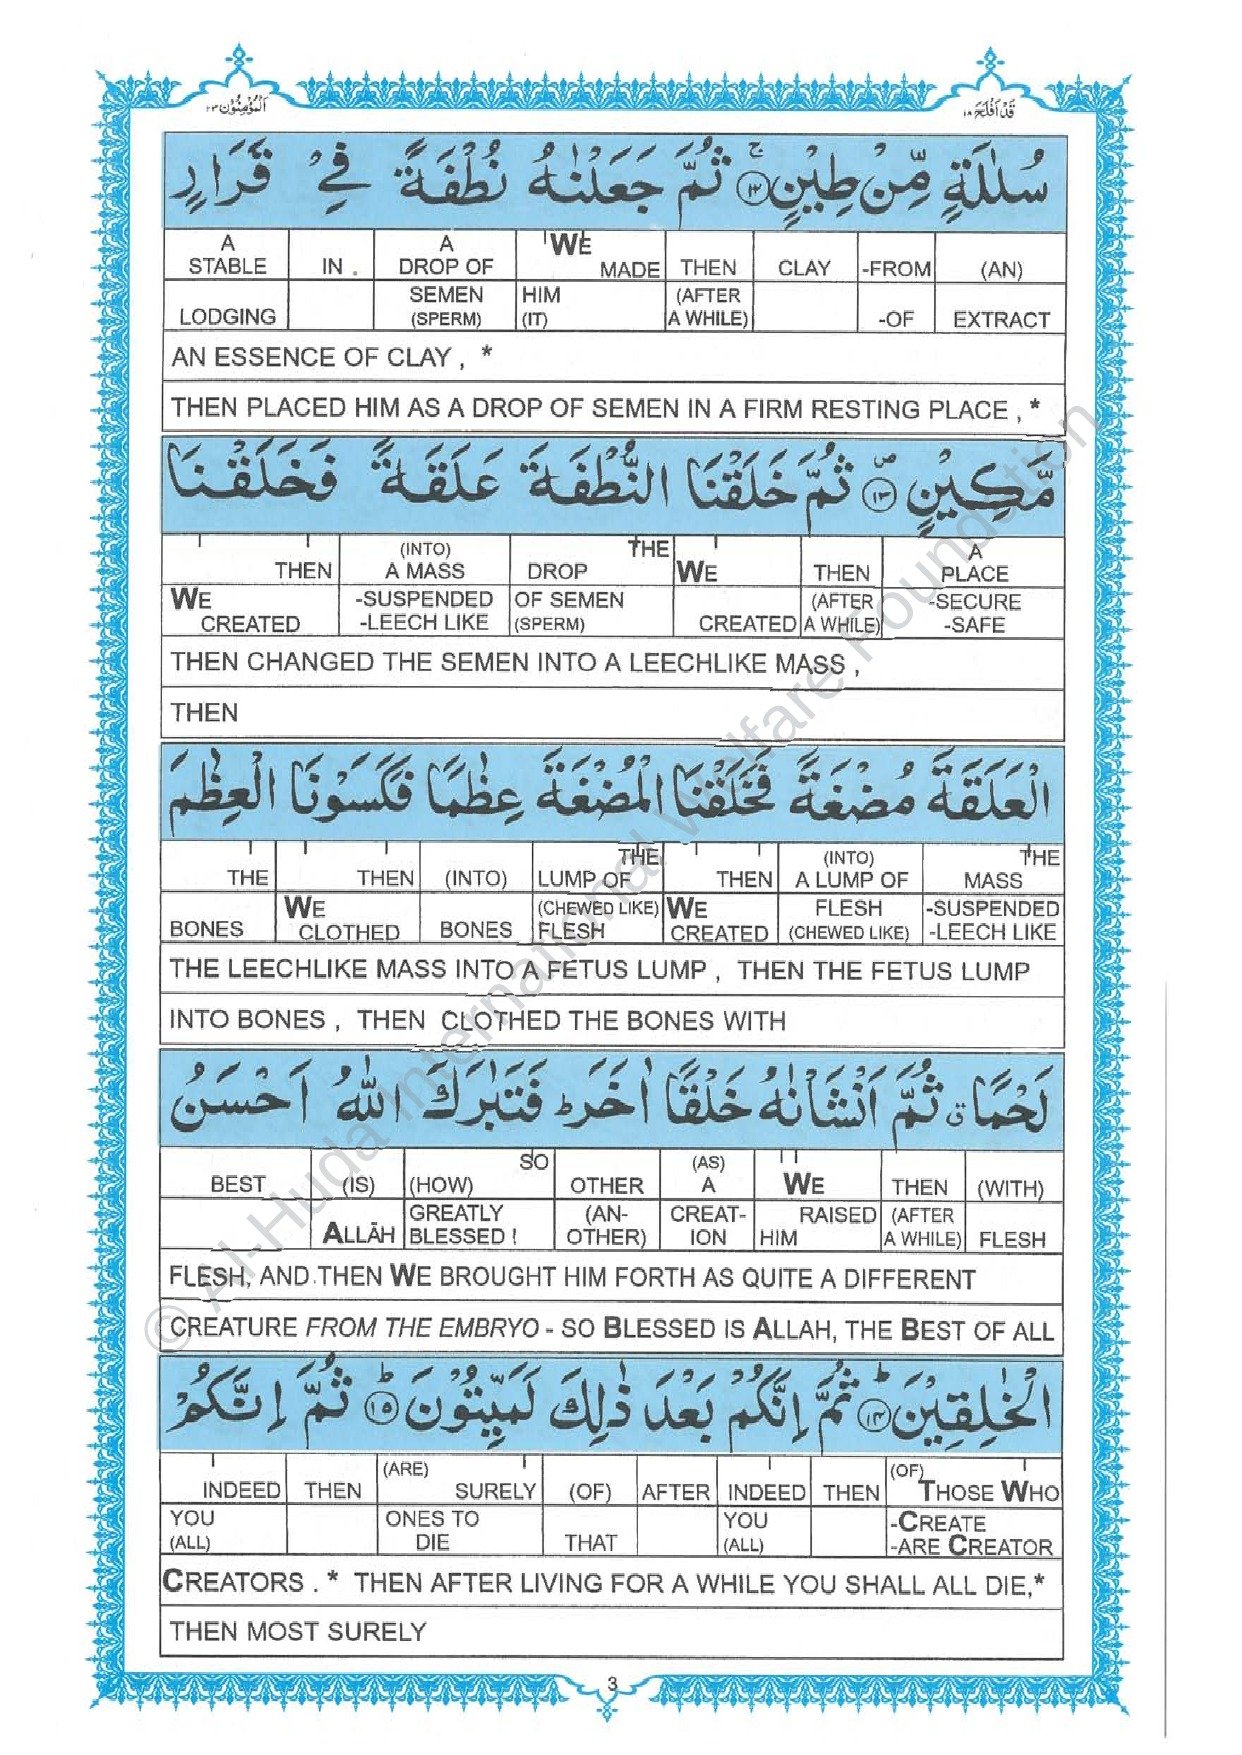 قَدْ اَفْلَحَ ١٨
اَلْمُؤْمِنُوْن ٢٣
سُلٰلَةٍ مِّنْ طِيْنٍ ۚ ﴿١٢﴾ ثُمَّ جَعَلْنٰهُ نُطْفَةً فِيْ قَرَارٍ
A A WE
STABLE IN . DROP OF MADE THEN CLAY -FROM (AN)
SEMEN HIM (AFTER
LODGING (SPERM) (IT) A WHILE) -OF EXTRACT
AN ESSENCE OF CLAY , *
THEN PLACED HIM AS A DROP OF SEMEN IN A FIRM RESTING PLACE , *
مَّكِيْنٍ ۖ ﴿١٣﴾ ثُمَّ خَلَقْنَا النُّطْفَةَ عَلَقَةً فَخَلَقْنَا
(INTO) THE A
THEN A MASS DROP WE THEN PLACE
WE -SUSPENDED OF SEMEN (AFTER -SECURE
CREATED -LEECH LIKE (SPERM) CREATED A WHILE) -SAFE
THEN CHANGED THE SEMEN INTO A LEECHLIKE MASS ,
THEN
الْعَلَقَةَ مُضْغَةً فَخَلَقْنَا الْمُضْغَةَ عِظٰمًا فَكَسَوْنَا الْعِظٰمَ
THE (INTO) THE
THE THEN (INTO) LUMP OF THEN A LUMP OF MASS
WE (CHEWED LIKE) WE FLESH -SUSPENDED
BONES CLOTHED BONES FLESH CREATED (CHEWED LIKE) -LEECH LIKE
THE LEECHLIKE MASS INTO A FETUS LUMP , THEN THE FETUS LUMP
INTO BONES , THEN CLOTHED THE BONES WITH
لَحْمًا ۗ ثُمَّ اَنْشَاْنٰهُ خَلْقًا اٰخَرَ ؕ فَتَبٰرَكَ اللّٰهُ اَحْسَنُ
SO (AS)
BEST (IS) (HOW) OTHER A WE THEN (WITH)
GREATLY (AN- CREAT- RAISED (AFTER
ALLĀH BLESSED ! OTHER) ION HIM A WHILE) FLESH
FLESH, AND THEN WE BROUGHT HIM FORTH AS QUITE A DIFFERENT
CREATURE FROM THE EMBRYO - SO BLESSED IS ALLAH, THE BEST OF ALL
الْخٰلِقِيْنَ ؕ ﴿١٤﴾ ثُمَّ اِنَّكُمْ بَعْدَ ذٰلِكَ لَمَيِّتُوْنَ ؕ ﴿١٥﴾ ثُمَّ اِنَّكُمْ
(ARE) (OF)
INDEED THEN SURELY (OF) AFTER INDEED THEN THOSE WHO
YOU ONES TO YOU -CREATE
(ALL) DIE THAT (ALL) -ARE CREATOR
CREATORS . * THEN AFTER LIVING FOR A WHILE YOU SHALL ALL DIE,*
THEN MOST SURELY
3
© Al-Huda International Welfare Foundation